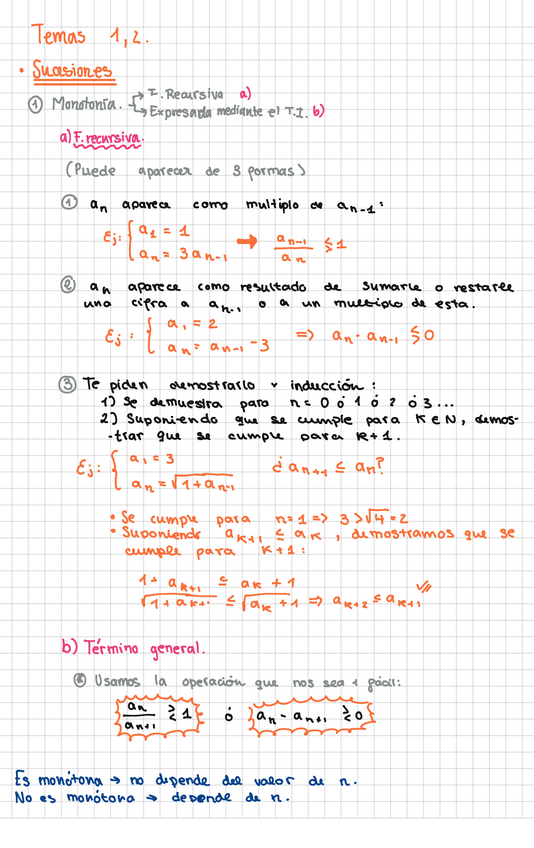 Temas 1,2.
• Sucesiones
① Monotonía. → F. Recursiva a)
→ Expresada mediante el T.I. b)
a) F. recursiva.
(Puede aparecer de 3 formas)
① an aparece como multiplo de an-1:
Ej: { a1 = 1
an = 3an-1 → an-1/an ≶ 1
② an aparece como resultado de sumarle o restarle
una cifra a an-1 o a un multiplo de esta.
Ej: { a1 = 2
an = an-1 - 3 => an - an-1 ≶ 0
③ Te piden demostrarlo x inducción:
1) Se demuestra para n = 0 ó 1 ó 2 ó 3...
2) Suponiendo que se cumple para K ∈ N, demos-
-trar que se cumple para K+1.
Ej: { a1 = 3
an = √1+an-1 ¿an+1 ≤ an?
• Se cumple para n=1 => 3 > √4 = 2
• Suponiendo aK+1 ≤ aK, demostramos que se
cumple para K+1:
1 + aK+1 ≤ aK + 1
√1+aK+1 ≤ √aK+1 => aK+2 ≤ aK+1 ✓
b) Término general.
⊛ Usamos la operación que nos sea + fácil:
an/an+1 ≷ 1 ó an - an+1 ≷ 0
Es monótona → no depende del valor de n.
No es monótona → depende de n.